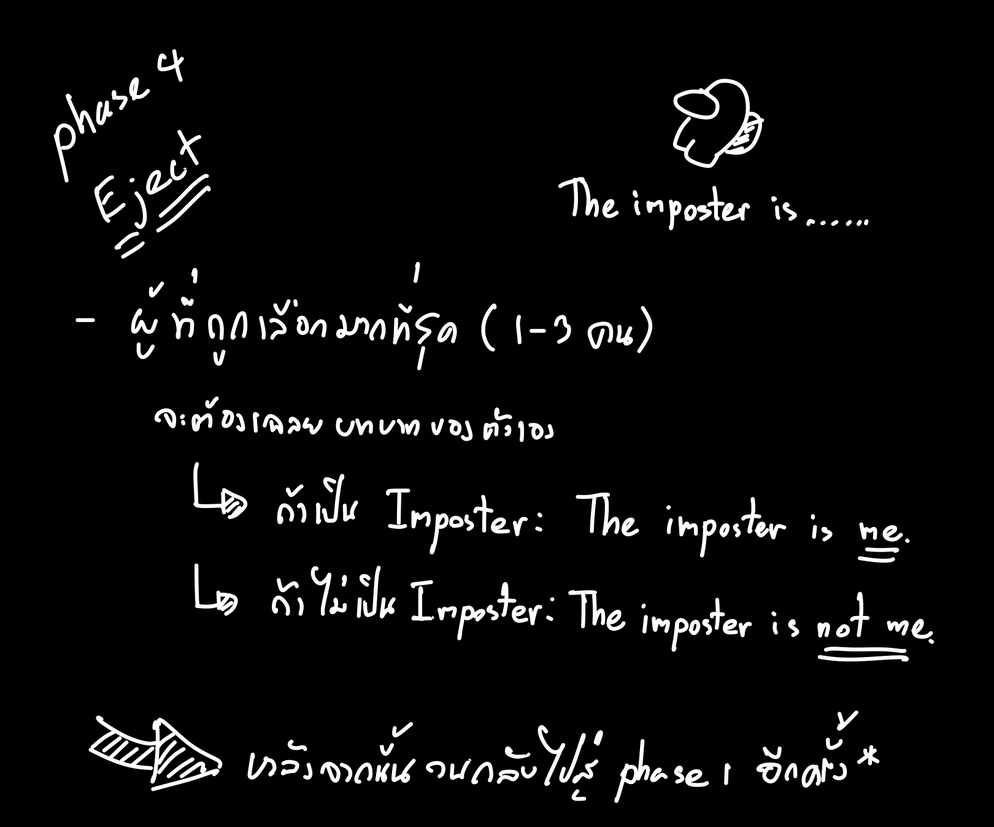 phase 4
Eject
The imposter is......
- ผู้ที่ถูกเลือกมากที่สุด (1-3 คน)
จะต้องเฉลยบทบาทของตัวเอง
ถ้าเป็น Imposter: The imposter is me.
ถ้าไม่เป็น Imposter: The imposter is not me.
หลังจากนั้น วนกลับไปสู่ phase 1 อีกครั้ง*